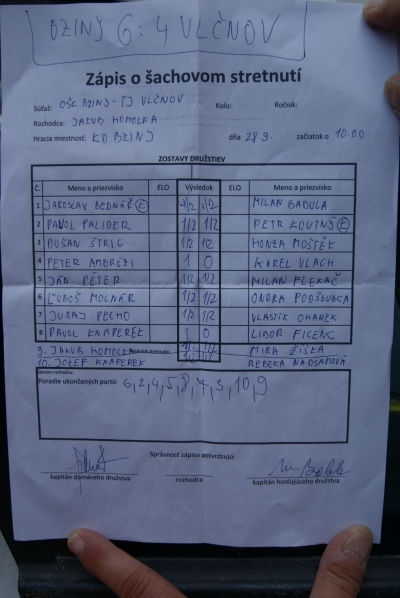 BZINY 6:4 VLČNOV
Zápis o šachovom stretnutí
Súťaž: OŠK BZINY - TJ VLČNOV Kolo: Ročník:
Rozhodca: JAKUB HOMOLKA
Hracia miestnosť: KD BZINY dňa 28.9. začiatok o 10.00
ZOSTAVY DRUŽSTIEV
Č. Meno a priezvisko ELO Výsledok ELO Meno a priezvisko
1 JAROSLAV BEDNÁŘ 1/2 1/2 MILAN BABULA
2 PAVOL PALIDER 1/2 1/2 PETR KOUTNÝ
3 DUŠAN ŠTRIC 1/2 1/2 HONZA MOŠTĚK
4 PETER AMBRÓZI 1 0 KAREL VLACH
5 JÁN PÉTER 1/2 1/2 MILAN FLEKAČ
6 ĽUBOŠ MOLNÁR 1/2 1/2 ONDRA
7 JURAJ PECHO 1/2 1/2 VLASTÍK OHAREK
8 PAVOL KNAPEREK 1 0 LIBOR FICENC
9. JAKUB HOMOLKA 1/2 1/2 MIRA ŽIŠKA
10. JOZEF KNAPEREK 1/2 1/2 REBEKA
Poradie ukončených partií: 6,2,4,5,8,7,3,10,9
Správnosť zápisu potvrdzujú:
kapitán domáceho družstva rozhodca kapitán hosťujúceho družstva